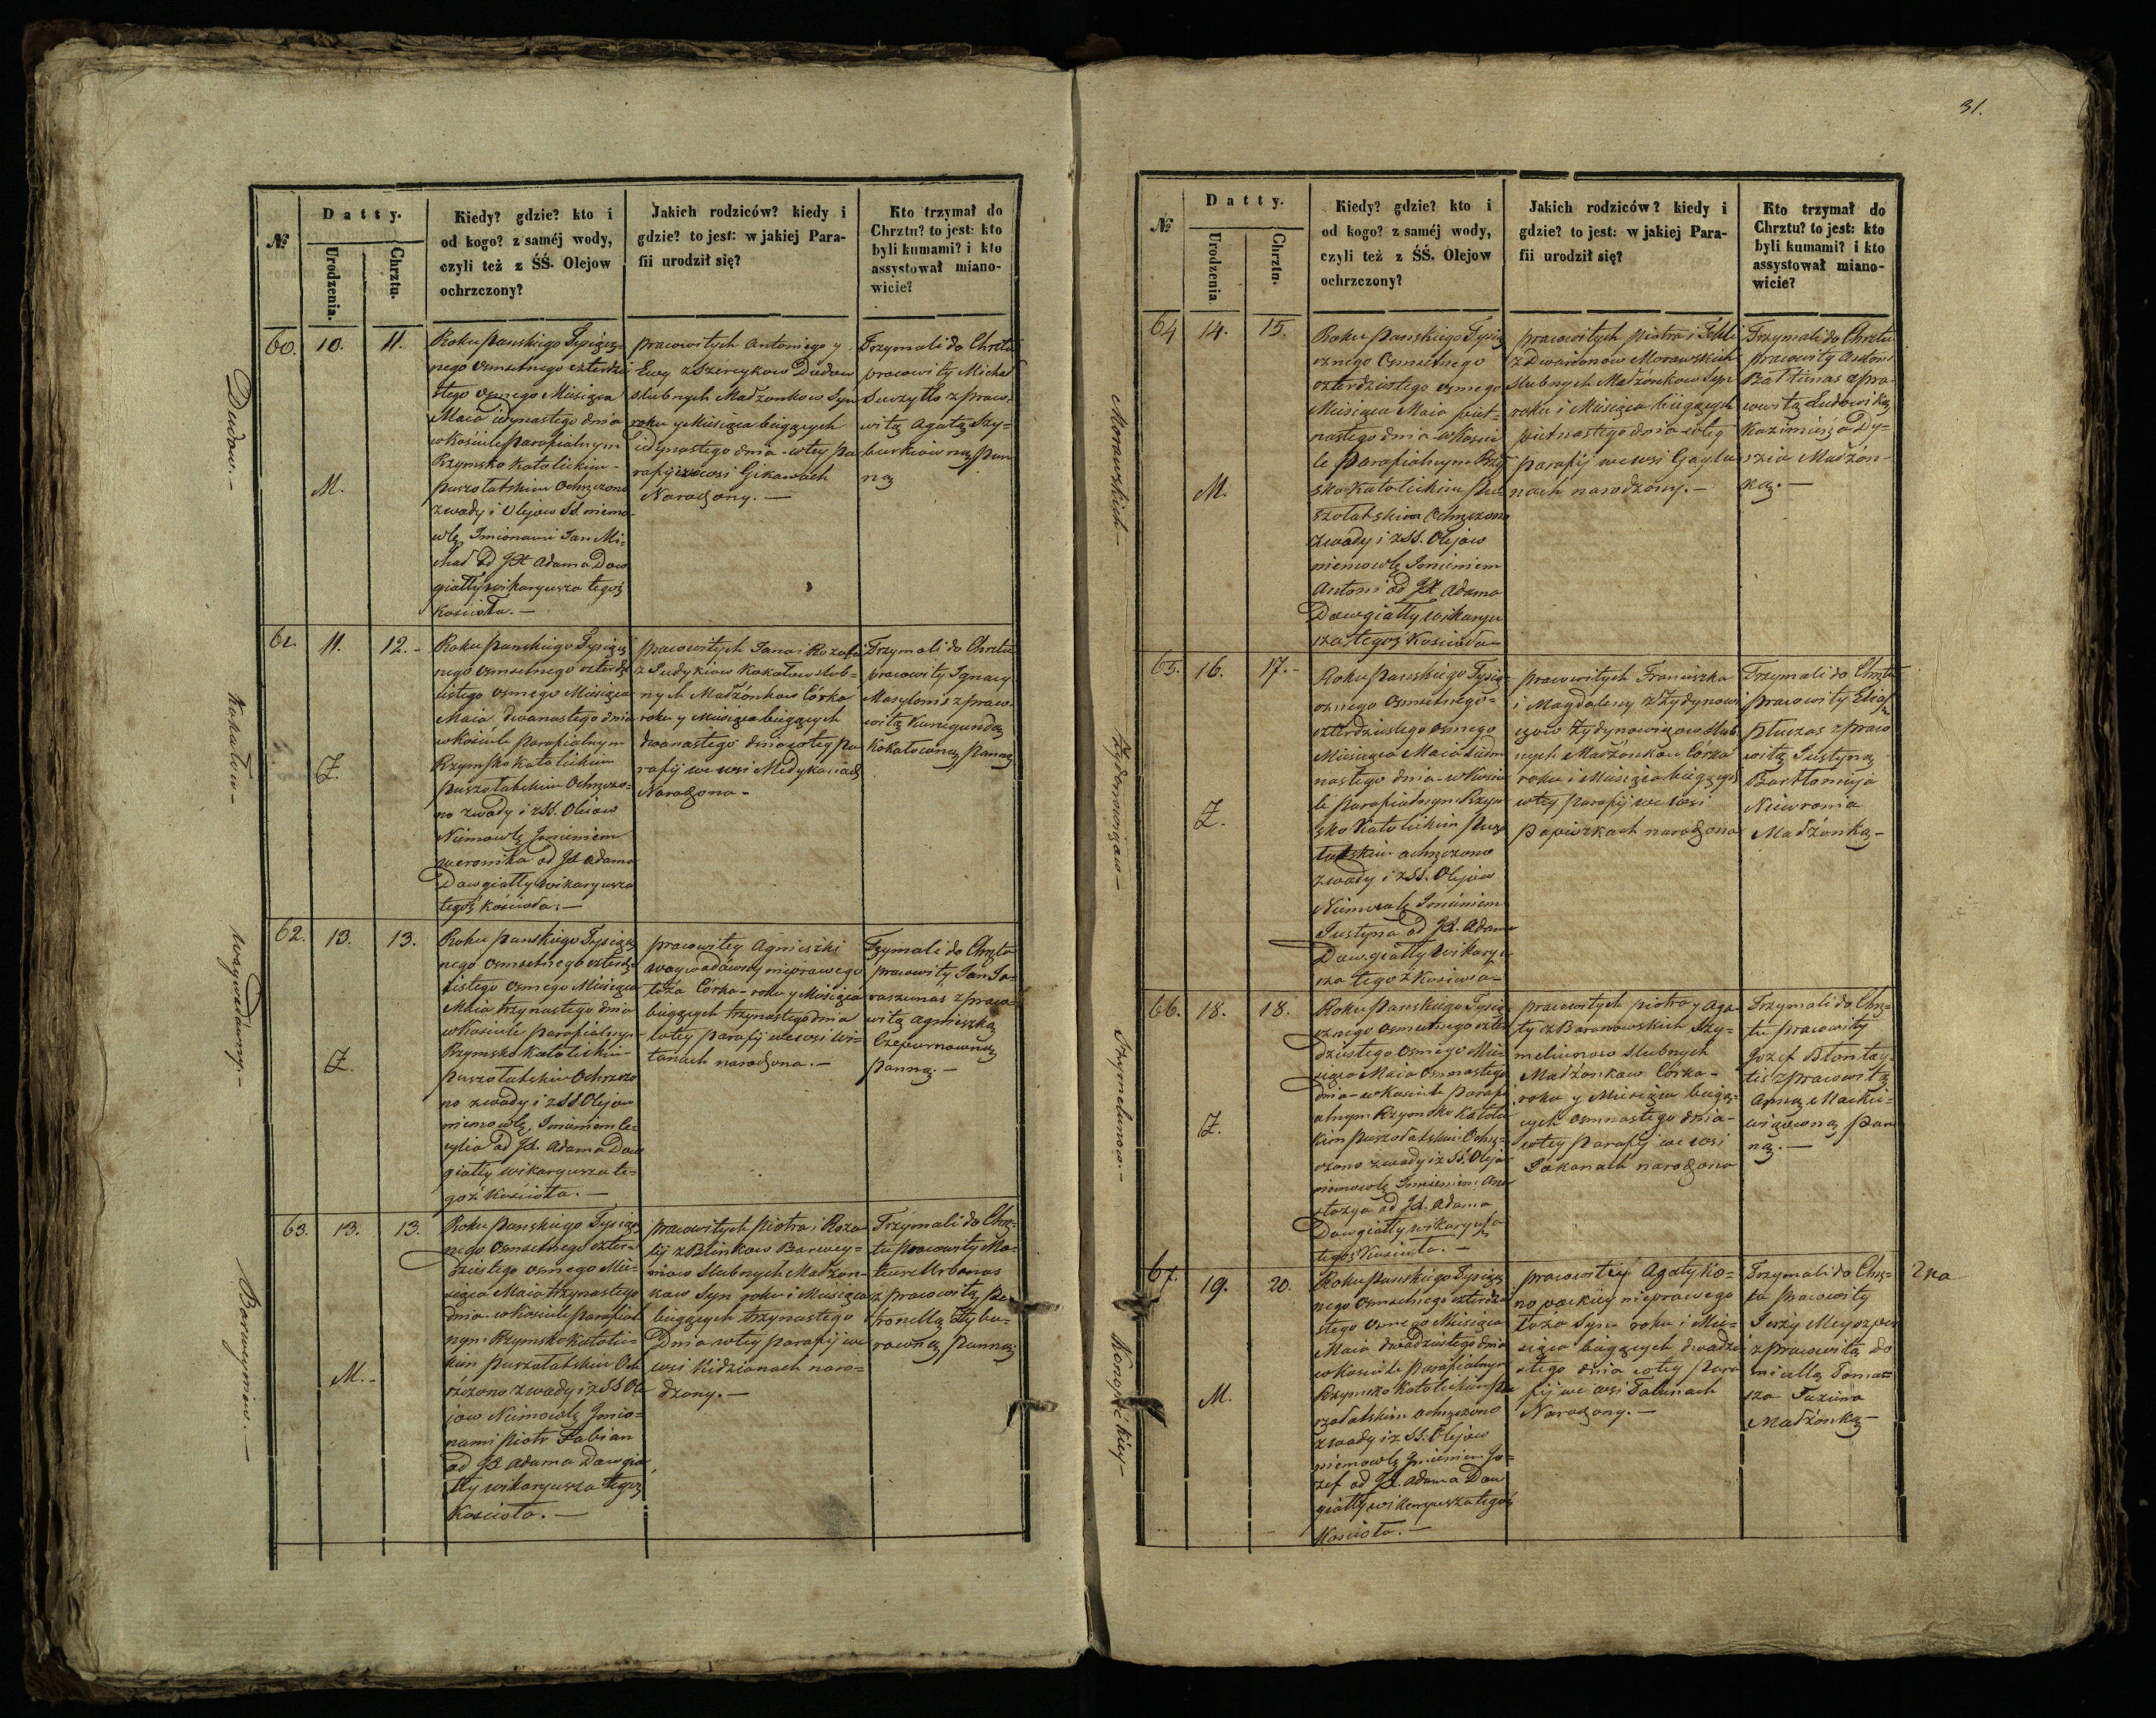 31.
№
Datty.
Urodzenia.
Chrztu.
Kiedy? gdzie? kto i
od kogo? z saméj wody,
czyli też z ŚŚ. Olejow
ochrzczony?
Jakich rodziców? kiedy i
gdzie? to jest: w jakiej Para-
fii urodził się?
Kto trzymał do
Chrztu? to jest: kto
byli kumami? i kto
assystował miano-
wicie?
Dudow.-
60.
10.
11.
M.
Roku Panskiego Tysiącz-
nego Osmsetnego czterdzie
stego Osmego Miesiąca
Maia iedynastego dnia
w Kościele Parafialnym
Rzymsko Katolickim-
Puszołatskim Ochrzczono
z wody i Olejow SS. niemo-
wlę Imionami Jan Mi-
chał od JX Adama Dow
giałły wikaryusza tegoż
Kościoła.-
pracowitych Antoniego y
Ewy z Szereykow Dudow
slubnych Małżonkow Syn
roku y Miesiąca biegących
iedynastego dnia w tey pa
rafij we wsi Gikaniach
Narodzony.-
Trzymali do Chrztu
pracowity Michał
z praco-
witą Agatą Szy-
burkiowną pan
ną
Kokałow-
61.
11.
12.-
Ż.
Roku Panskiego Tysiącz
nego Osmsetnego czterdzie
stego Osmego Miesiąca
Maia dwanastego dnia
w Kościele Parafialnym
Rzymsko Katolickim
Puszołatskim Ochrzczo-
no z wody i z SS. Olejow
Niemowlę Imieniem
Weronika od JX Adama
Dowgiałły wikaryusza
tegoż Kościoła.-
pracowitych Jana i Rozalii
z Kokałow slub-
nych Małżonkow Córka
roku y Miesiąca biegących
dwanastego dnia w tey pa
rafij we wsi Medykoniach
Narodzona-
Trzymali do Chrztu
pracowity Ignacy
z praco-
witą Kunegundą
Kokałowną Panną
Woywodówny.-
62.
13.
13.
Ż.
Roku Panskiego Tysiącz
nego Osmsetnego czterdzie
stego Osmego Miesiąca
Maia trzynastego dnia
w Kościele Parafialnym
Rzymsko Katolickim-
Puszołatskim Ochrzczo
no z wody i z SS Olejow
niemowlę, Imieniem Ce-
cylia od JX. Adama Dow
giałły wikaryusza te-
goż Kościoła.-
pracowitey Agnieszki
Woywodówny nieprawego
łoża Córka- roku y Miesiąca
biegących trzynastego dnia
w tey parafij we wsi Wi-
tanach narodzona.-
Trzymali do Chrztu
pracowity Jan Ja-
raszunas z praco-
witą Agnieszką
Czepurnowną
panną.-
Barweyniow.-
63.
13.
13.
M.-
Roku Panskiego Tysiącz
nego Osmsetnego czter-
dziestego Osmego Mie-
siąca Maia trzynastego
dnia w Kościele Parafial
nym Rzymsko Katolic-
kim Puszołatskim Och
rzczono z wody i z SS Ole
jow Niemowlę Imio-
nami Piotr Fabian
od JX Adama Dowgia
łły wikaryusza tegoż
Kościoła.-
pracowitych Piotra i Roza
lij z Blinkow Barwey-
niow Slubnych Małżon-
kow Syn roku i Miesiąca
biegących trzynastego
Dnia w tey parafij we
wsi Kidzionach naro-
dzony.-
Trzymali do Chrz-
tu Pracowity Ma-
teusz Urbonas
z pracowitą Pe-
tronellą Cybu-
rowną Panną
№
Datty.
Urodzenia
Chrztu.
Kiedy? gdzie? kto i
od kogo? z saméj wody,
czyli też z ŚŚ. Olejow
ochrzczony?
Jakich rodziców? kiedy i
gdzie? to jest: w jakiej Para-
fii urodził się?
Kto trzymał do
Chrztu? to jest: kto
byli kumami? i kto
assystował miano-
wicie?
Morawskich-
64
14.
15.
M.
Roku Panskiego Tysią
cznego Osmsetnego
czterdziestego Osmego
Miesiąca Maia piet-
nastego dnia w Koscie
le Parafialnym Rzym
sko Katolickim Pu
szołatskim Ochrzczono
z wody i z SS. Olejow
niemowlę Imieniem
Antoni od JX Adama
Dowgiałły wikaryu
sza tegoż Kościoła-
pracowitych Piotra i Tekli
z Morawskich
Slubnych Małżonkow Syn
roku i Miesiąca biegących
pietnastego dnia w tey
parafij we wsi Gaylu
nach narodzony.-
Trzymali do Chrztu
pracowity Antoni
Bałtunas z pra-
cowitą Ludowiką
Kazimierza Dy-
Małżon-
ką.-
Żydonowiczow-
65.
16.
17.-
Ż.
Roku Panskiego Tysią-
cznego Osmsetnego-
czterdziestego Osmego
Miesiąca Maia siedm
nastego dnia w Koscie
le Parafialnym Rzym
sko Katolickim Pusz
łatskim Ochrzczono
z wody i z SS. Olejow
Niemowlę Imieniem
Justyna od JX. Adama
Dowgiałły wikaryu
sza tegoż Kościoła-
pracowitych Franciszka
i Magdaleny
Żydynowiczow slub
nych Małżonkow Córka
roku i Miesiąca biegących
w tey parafij we wsi
Papiwzkach narodzona
Trzymali do Chrztu
pracowity Eliasz
z praco
witą Justyną
Bartłomieja
Niewronia
Małżonką-
Szymelunow.-
66.
18.
18.
Ż.
Roku Panskiego Tysią-
cznego Osmsetnego czter
dziestego Osmego Mie-
siąca Maia Osmnastego
dnia w Kościele Parafi
alnym Rzymsko Katolic
kim Puszołatskim Ochrz-
czono z wody i z SS. Olejow
niemowlę Imieniem Ana
stazya od JX. Adama
Dowgiałły wikaryusza
tegoż Kościoła.-
pracowitych Piotra y Aga
ty z Baranowskich Szy-
melunow Slubnych
Małżonkow Córka-
roku y Miesiąca biegą-
cych Osmnastego dnia-
w tey Parafij we wsi
Jokanach narodzona
Trzymali do Chrz-
tu pracowity
Jozef
z pracowitą
Anną Macku-
wiczowną Pan
ną.-
Konopackiey-
67.
19.
20.
M.
Roku Panskiego Tysiącz
nego Osmsetnego czterdzie
stego Osmego Miesiąca
Maia dwudziestego dnia
w Kościele Parafialnym
Rzymsko Katolickim Pu
szołatskim Ochrzczono
z wody i z SS. Olejow
niemowlę Imieniem Jo-
zef od JX. Adama Dow
giałły wikaryusza tegoż
Kościoła.-
pracowitey Agaty Ko-
nopackiey nieprawego
łoża Syn- roku i Mie-
siąca biegących dwudzie
stego dnia w tey Para
fij we wsi Talunach
Narodzony.-
Trzymali do Chrz-
tu pracowity
Jerzy
z pracowitą Do
micellą Toma-
sza Tuziena
Małżonką-